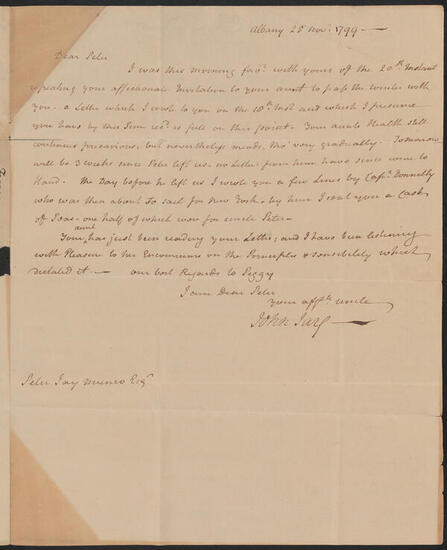 Albany 25 Novr. 1799 —
Dear Peter
I was this morning favd. with yours of the 20th Instant
repeating your affectionate Invitation to your aunt to pass the winter with
you. a Letter which I wrote to you on the 18th Inst and which I presume
you have by this Time recd. is full on this point. Your aunts Health still
continues precarious, but nevertheless mends, tho' very gradually. Tomorrow
will be 3 weeks since Peter left us. no Letters from him have since come to
Hand. The Day before he left us I wrote you a few Lines by Capt. Donnelly
who was then about To sail for New York. by him I sent you a Cask
of Peas - one half of which were for uncle Peter -
Your aunt has just been reading your Letter; and I have been listening
with Pleasure to her Encomiums on the Principles & sensibility which
dictated it — our best Regards to Peggy
I am Dear Peter
your affte. uncle
John Jay —
Peter Jay Munro Esqr